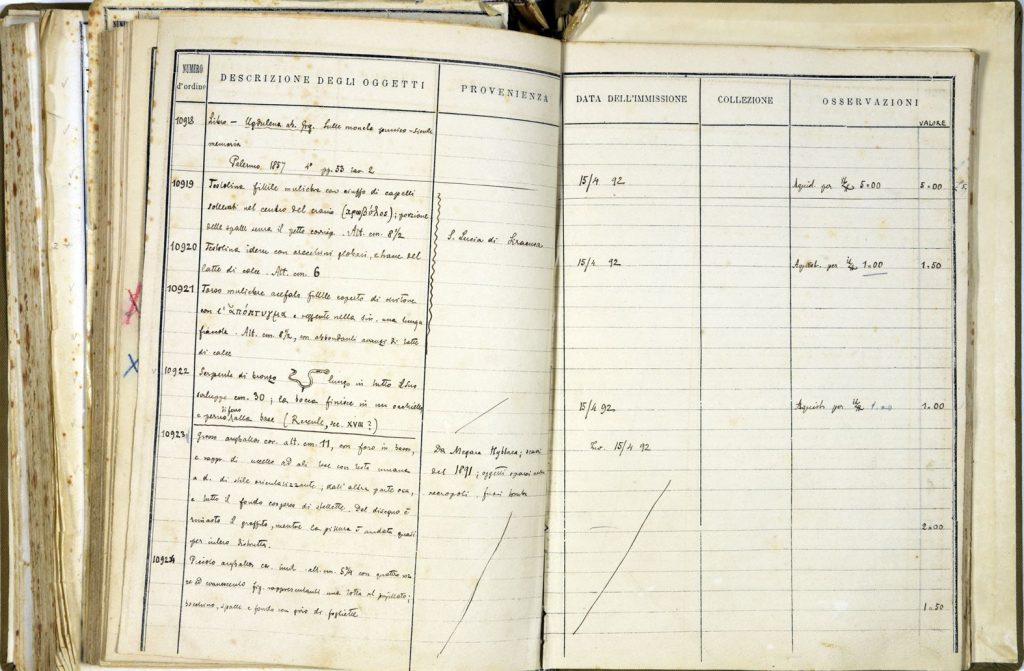 NUMERO d'ordine
DESCRIZIONE DEGLI OGGETTI
PROVENIENZA
DATA DELL'IMMISSIONE
COLLEZIONE
OSSERVAZIONI
VALORE
10918
Libro. — Ugdulena ab. Grg. Sulle monete punico-sicule
memoria
Palermo 1857 4° pp. 53 tav. 2
15/4 92
Acquist. per 5=00
5=00
10919
Testolina fittile muliebre con ciuffo di capelli
sollevati nel centro del cranio (κρωβύλος); porzione
delle spalle Alt. cm. 8 1/2
S. Lucia di Siracusa
10920
Testolina idem con orecchini globari, e tracce del
latte di calce. Alt. cm. 6
15/4 92
Acquist. per 1=00
1=50
10921
Torso muliebre acefalo fittile coperto di chitone
con l' ἀπόπτυγμα e reggente nella sin. una lunga
fiaccola. Alt. cm. 8 1/2, con abbondanti avanzi di latte
di calce
10922
Serpente di bronzo lungo in tutto il suo
sviluppo cm. 30; la bocca finisce in un occhiello
e pernio alla base (Recente, sec. XVIII?)
15/4 92
Acquist. per 1=00
1=00
10923
Grosso aryballos cor. alt. cm. 11, con foro in basso,
e rapp. di uccello ad ali tese con testa umana
a d. di stile orientalizzante; dall'altra parte oca,
e tutto il fondo cosperso di stellette. Del disegno è
rimasto il graffito, mentre la pittura è andata quasi
per intero distrutta.
Da Megara Hyblaea; scavi
del 1891; oggetti sparsi nella
necropoli, fuori tombe
15/4 92
2=00
10924
Piccolo aryballos cor. alt. cm. 5 3/4 con quattro
ed evanescenti fig. rappresentanti una lotta al pugillato;
bocchino, spalle e fondo con giro di fogliette
1=50